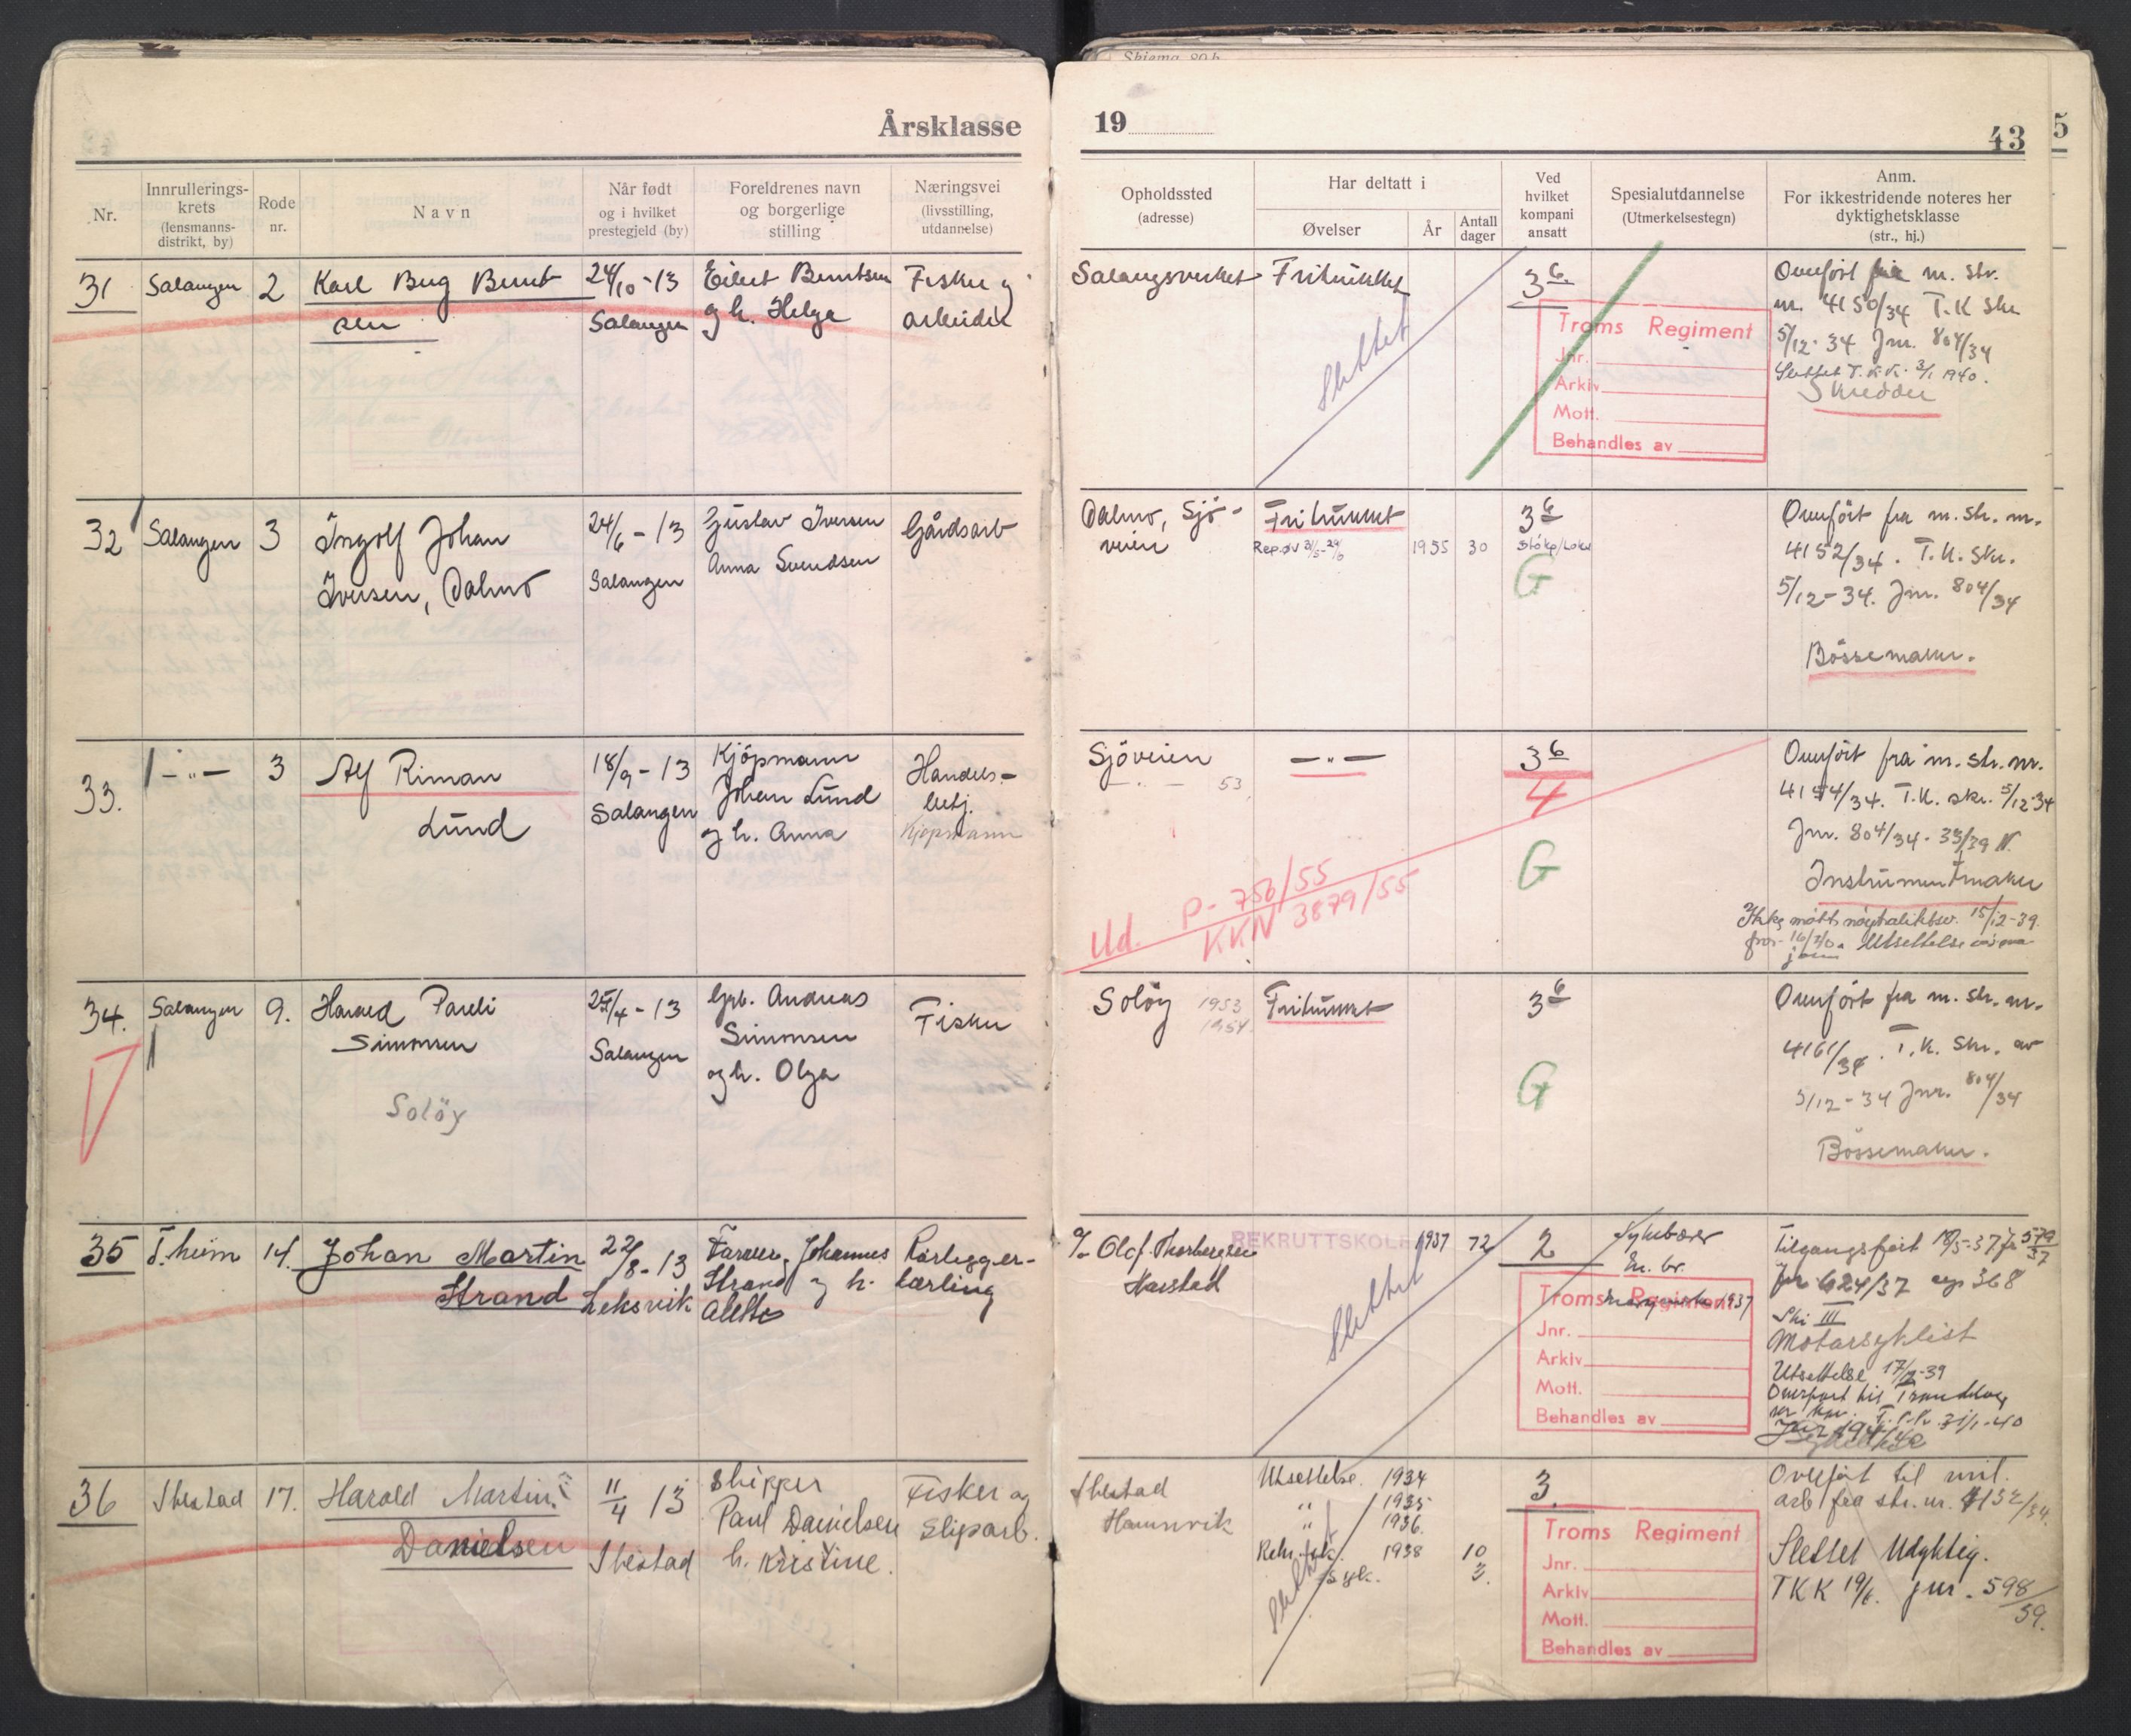 Årsklasse
Nr.
Innrullerings-
krets
(lensmanns-
distrikt, by)
Rode
nr.
Navn
Når født
og i hvilket
prestegjeld (by)
Foreldrenes navn
og borgerlige
stilling
Næringsvei
(livsstilling,
utdannelse)
31
Salangen
2
Karl Berg Bernt
sen
24/10-13
Salangen
Eilert Berntsen
og h. Helga
Fisker og
arbeider
32
Salangen
3
Ingolf Johan
Iversen, Dalmo
24/6-13
Salangen
Gustav Iversen
Anna Svendsen
Gårdsarb
33.
-"-
3
Alf Riman
Lund
18/9-13
Salangen
Kjöpmann
Johan Lund
og h. Anna
Handels-
betj.
Kjöpmann
34.
Salangen
9.
Harald Pauli
Simonsen
Solöy
25/4-13
Salangen
Gbr. Andreas
Simonsen
og h. Olga
Fisker
35
T.heim
14.
Johan Martin
Strand
22/8-13
Leksvik
Johannes
Strand og h.
Alette
Rørlegger-
lærling
36
Ibestad
17.
Harald Martin
Danielsen
11/4 13
Ibestad
Skipper
Paul Danielsen
h. Kristine.
Fisker og
Sliparb.
Skjema 80 b
19
43
5
Opholdssted
(adresse)
Har deltatt i
Øvelser
År
Antall
dager
Ved
hvilket
kompani
ansatt
Spesialutdannelse
(Utmerkelsestegn)
Anm.
For ikkestridende noteres her
dyktighetsklasse
(str., hj.)
Salangsverket
Fritrukket
Slettet
3 6
Troms Regiment
Jnr.
Arkiv
Mott.
Behandles av
Overfört fra m. str.
nr. 4150/34 T.K Skr
5/12-34 Jnr. 804/34
Slettet T.K.K. 3/1 1940.
Skredder
Dalmo, Sjö-
veien
Fritrukket
Rep.øv
1955
30
3 6
G
Overfört fra m. str. nr.
4152/34. T.K. Skr.
5/12-34. Jnr. 804/34
Bössemaker.
Sjöveien
53
-"-
3 6
4
G
Ud. P-756/55
KKN 3879/55
Overfört fra m. str. nr.
4154/34. T.K. skr. 5/12-34
Jnr. 804/34
Instrumentmaker
15/12-39.
Utsettelse
Solöy
1953
1954
Fritrukket
3 6
G
Overfört fra m. str. nr.
4161/34. T.K. Skr. av
5/12-34 Jnr. 804/34
Bössemaker.
Olaf Thorbergsen
Harstad
REKRUTTSKOLE
1937
72
Slettet
2
Sykebærer
1937
Troms Regiment
Jnr.
Arkiv
Mott.
Behandles av
Tilgangsført 579/37
624/37 368
Ski III
Motorsyklist
Utsettelse 17/2-39
Overført til Trøndelag
31/1-40
Ibestad
Hamnvik
Utsettelse. 1934
" 1935
" 1936.
Rekr. sk. 1938
10
syk.
3.
Slettet
3.
Troms Regiment
Jnr.
Arkiv
Mott.
Behandles av
Overført til mil.
arb. fra str. nr. 4132/34.
Slettet Udyktig.
TKK 19/6. jnr. 598/39.